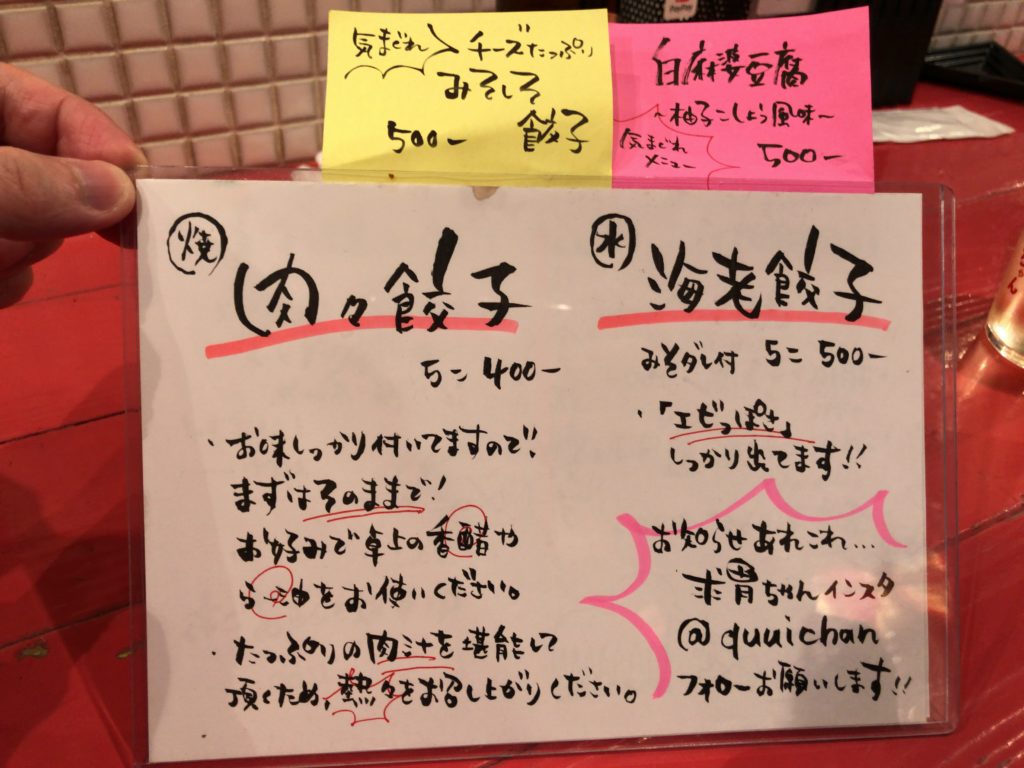 気まぐれ チーズたっぷり
みそしそ
餃子
500-
白麻婆豆腐
~柚子こしょう風味~
気まぐれ
メニュー
500-
焼
肉々餃子
5コ 400-
・お味しっかり付いてますので!
まずはそのままで!
お好みで卓上の香醋や
らー油をお使いください。
・たっぷりの肉汁を堪能して
頂くため、熱々をお召し上がりください。
水
海老餃子
みそダレ付 5コ 500-
・「エビっぽさ」
しっかり出てます!!
お知らせあれこれ...
求胃ちゃんインスタ
@quuichan
フォローお願いします!!